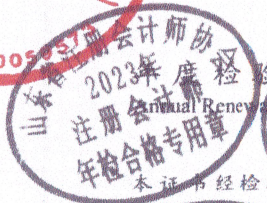 0050573
山东省注册会计师协
2023年
注册会计师
年检合格专用章
年度检验
Annual Renewa
本证书经检